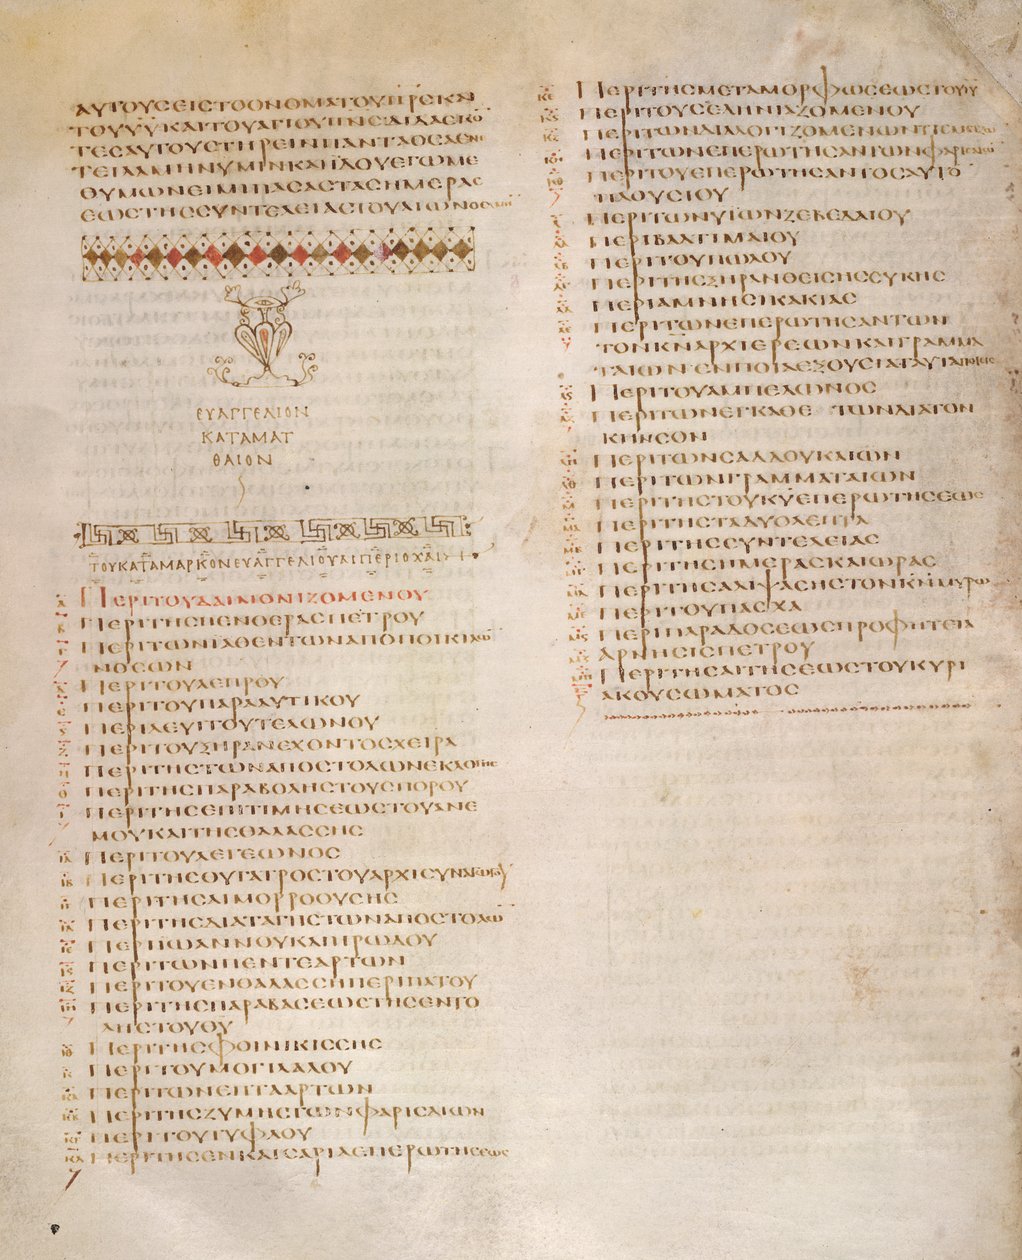 ΑΥΤΟΥϹΕΙϹΤΟΟΝΟΜΑΤΟΥΠ̅Ρ̅Ϲ̅ΚΑΙ
ΤΟΥΥ̅Υ̅ΚΑΙΤΟΥΑΓΙΟΥΠ̅Ν̅Ϲ̅ΔΙΔΑϹΚΟ̅
ΤΕϹΑΥΤΟΥϹΤΗΡΕΙΝΠΑΝΤΑΟϹΑΕΝΕ
ΤΕΙΛΑΜΗΝΥΜΙΝΚΑΙΪΔΟΥΕΓΩΜΕ
ΘΥΜΩΝΕΙΜΙΠΑϹΑϹΤΑϹΗΜΕΡΑϹ
ΕΩϹΤΗϹϹΥΝΤΕΛΕΙΑϹΤΟΥΑΙΩΝΟϹ
ΕΥΑΓΓΕΛΙΟΝ
ΚΑΤΑΜΑΤ
ΘΑΙΟΝ
ΤΟΥΚΑΤΑΜΑΡΚΟΝΕΥΑΓΓΕΛΙΟΥΑΙΠΕΡΙΟΧΑΙ
Α̅ ΠΕΡΙΤΟΥΔΑΙΜΟΝΙΖΟΜΕΝΟΥ
Β̅ ΠΕΡΙΤΗϹΠΕΝΘΕΡΑϹΠΕΤΡΟΥ
Γ̅ ΠΕΡΙΤΩΝΙΑΘΕΝΤΩΝΑΠΟΠΟΙΚΙΛΩ̅
ΝΟϹΩΝ
Δ̅ ΠΕΡΙΤΟΥΛΕΠΡΟΥ
Ε̅ ΠΕΡΙΤΟΥΠΑΡΑΛΥΤΙΚΟΥ
Ϛ̅ ΠΕΡΙΛΕΥΙΤΟΥΤΕΛΩΝΟΥ
Ζ̅ ΠΕΡΙΤΟΥΞΗΡΑΝΕΧΟΝΤΟϹΧΕΙΡΑ
Η̅ ΠΕΡΙΤΗϹΤΩΝΑΠΟϹΤΟΛΩΝΕΚΛΟΓΗϹ
Θ̅ ΠΕΡΙΤΗϹΠΑΡΑΒΟΛΗϹΤΟΥϹΠΟΡΟΥ
Ι̅ ΠΕΡΙΤΗϹΕΠΙΤΙΜΗϹΕΩϹΤΟΥΑΝΕ
ΜΟΥΚΑΙΤΗϹΘΑΛΑϹϹΗϹ
Ι̅Α̅ ΠΕΡΙΤΟΥΛΕΓΕΩΝΟϹ
Ι̅Β̅ ΠΕΡΙΤΗϹΘΥΓΑΤΡΟϹΤΟΥΑΡΧΙϹΥΝΑΓΩΓΟΥ
Ι̅Γ̅ ΠΕΡΙΤΗϹΑΙΜΟΡΡΟΟΥϹΗϹ
Ι̅Δ̅ ΠΕΡΙΤΗϹΔΙΑΤΑΓΗϹΤΩΝΑΠΟϹΤΟΛΩ̅
Ι̅Ε̅ ΠΕΡΙΪΩΑΝΝΟΥΚΑΙΗΡΩΔΟΥ
Ι̅Ϛ̅ ΠΕΡΙΤΩΝΠΕΝΤΕΑΡΤΩΝ
Ι̅Ζ̅ ΠΕΡΙΤΟΥΕΝΘΑΛΑϹϹΗΠΕΡΙΠΑΤΟΥ
Ι̅Η̅ ΠΕΡΙΤΗϹΠΑΡΑΒΑϹΕΩϹΤΗϹΕΝΤΟ
ΛΗϹΤΟΥΘ̅Υ̅
Ι̅Θ̅ ΠΕΡΙΤΗϹΦΟΙΝΙΚΙϹϹΗϹ
Κ̅ ΠΕΡΙΤΟΥΜΟΓΙΛΑΛΟΥ
Κ̅Α̅ ΠΕΡΙΤΩΝΕΠΤΑΑΡΤΩΝ
Κ̅Β̅ ΠΕΡΙΤΗϹΖΥΜΗϹΤΩΝΦΑΡΙϹΑΙΩΝ
Κ̅Γ̅ ΠΕΡΙΤΟΥΤΥΦΛΟΥ
Κ̅Δ̅ ΠΕΡΙΤΗϹΕΝΚΑΙϹΑΡΙΑΕΠΕΡΩΤΗϹΕΩϹ
Κ̅Ε̅ ΠΕΡΙΤΗϹΜΕΤΑΜΟΡΦΩϹΕΩϹΤΟΥΙ̅Υ̅
Κ̅Ϛ̅ ΠΕΡΙΤΟΥϹΕΛΗΝΙΑΖΟΜΕΝΟΥ
Κ̅Ζ̅ ΠΕΡΙΤΩΝΔΙΑΛΟΓΙΖΟΜΕΝΩΝΤΙϹΜΕΙΖΩ
Κ̅Η̅ ΠΕΡΙΤΩΝΕΠΕΡΩΤΗϹΑΝΤΩΝΦΑΡΙϹΑΙΩ
Κ̅Θ̅ ΠΕΡΙΤΟΥΕΠΕΡΩΤΗϹΑΝΤΟϹΑΥΤΟ̅
ΠΛΟΥϹΙΟΥ
Λ̅ ΠΕΡΙΤΩΝΥΙΩΝΖΕΒΕΔΑΙΟΥ
Λ̅Α̅ ΠΕΡΙΒΑΡΤΙΜΑΙΟΥ
Λ̅Β̅ ΠΕΡΙΤΟΥΠΩΛΟΥ
Λ̅Γ̅ ΠΕΡΙΤΗϹΞΗΡΑΝΘΕΙϹΗϹϹΥΚΗϹ
Λ̅Δ̅ ΠΕΡΙΑΜΝΗϹΙΚΑΚΙΑϹ
Λ̅Ε̅ ΠΕΡΙΤΩΝΕΠΕΡΩΤΗϹΑΝΤΩΝ
ΤΟΝΚ̅Ν̅ΑΡΧΙΕΡΕΩΝΚΑΙΓΡΑΜΜΑ
ΤΑΙΩΝΕΝΠΟΙΑΕΞΟΥϹΙΑΤΑΥΤΑΠΟΙΕΙϹ
Λ̅Ϛ̅ ΠΕΡΙΤΟΥΑΜΠΕΛΩΝΟϹ
Λ̅Ζ̅ ΠΕΡΙΤΩΝΕΓΚΑΘΕ ΤΩΝΔΙΑΤΟΝ
ΚΗΝϹΟΝ
Λ̅Η̅ ΠΕΡΙΤΩΝϹΑΔΔΟΥΚΑΙΩΝ
Λ̅Θ̅ ΠΕΡΙΤΩΝΓΡΑΜΜΑΤΑΙΩΝ
Μ̅ ΠΕΡΙΤΗϹΤΟΥΚ̅Υ̅ΕΠΕΡΩΤΗϹΕΩϹ
Μ̅Α̅ ΠΕΡΙΤΗϹΤΑΔΥΟΛΕΠΤΑ
Μ̅Β̅ ΠΕΡΙΤΗϹϹΥΝΤΕΛΕΙΑϹ
Μ̅Γ̅ ΠΕΡΙΤΗϹΗΜΕΡΑϹΚΑΙΩΡΑϹ
Μ̅Δ̅ ΠΕΡΙΤΗϹΑΛΙΨΑϹΗϹΤΟΝΚ̅Ν̅ΜΥΡΩ
Μ̅Ε̅ ΠΕΡΙΤΟΥΠΑϹΧΑ
Μ̅Ϛ̅ ΠΕΡΙΠΑΡΑΔΟϹΕΩϹΠΡΟΦΗΤΕΙΑ
Μ̅Ζ̅ ΑΡΝΗϹΙϹΠΕΤΡΟΥ
Μ̅Η̅ ΠΕΡΙΤΗϹΑΙΤΗϹΕΩϹΤΟΥΚΥΡΙ
ΑΚΟΥϹΩΜΑΤΟϹ